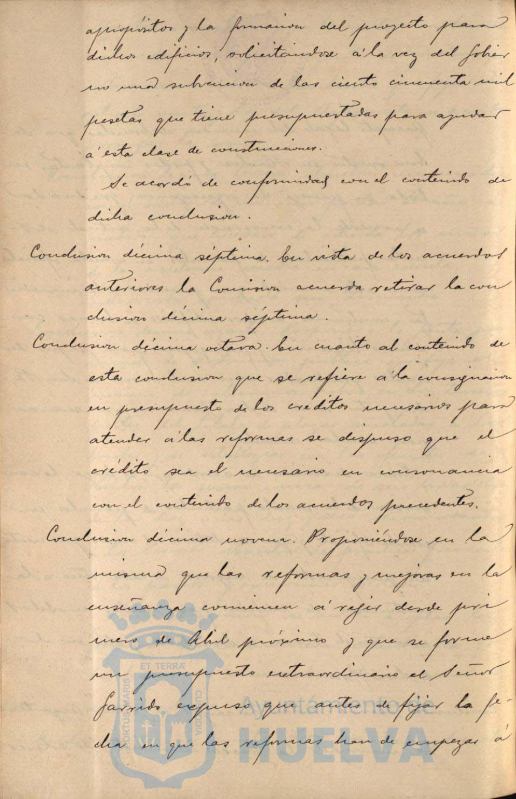 apropósitos y la formacion del proyecto para
dichos edificios, solicitándose á la vez del Gobier
no una subvencion de las ciento cincuenta mil
pesetas que tiene presupuestadas para ayudar
á esta clase de construcciones.
Se acordó de conformidad con el contenido de
dicha conclusion.
Conclusion décima séptima. En vista de los acuerdos
anteriores la Comision acuerda retirar la con
clusion décima séptima.
Conclusion décima octava. En cuanto al contenido de
esta conclusion que se refiere á la consignacion
en presupuesto de los créditos necesarios para
atender á las reformas se dispuso que el
crédito sea el necesario en consonancia
con el contenido de los acuerdos precedentes.
Conclusion décima novena. Proponiéndose en la
misma que las reformas y mejoras en la
enseñanza comiencen á rejir desde pri
mero de Abril próximo y que se forme
un presupuesto extraordinario el Señor
Garrido expuso que antes de fijar la fe-
cha en que las reformas han de empezar á
ET TERRÆ
PORTUS MARIS
CUSTODIA
Ayuntamiento de
HUELVA